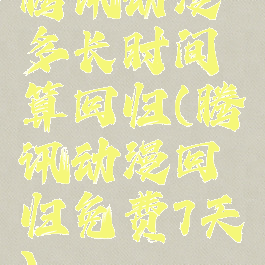 腾讯动漫
多长时间
算回归(腾
讯动漫回
归免费7天
)